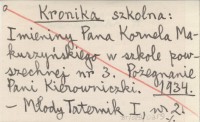 Kronika szkolna:
Imieniny Pana Kornela Ma-
kuszyńskiego w szkole pow-
szechnej nr 3. Pożegnanie
Pani Kierowniczki. 1934.
— Młody Taternik I, nr 2.